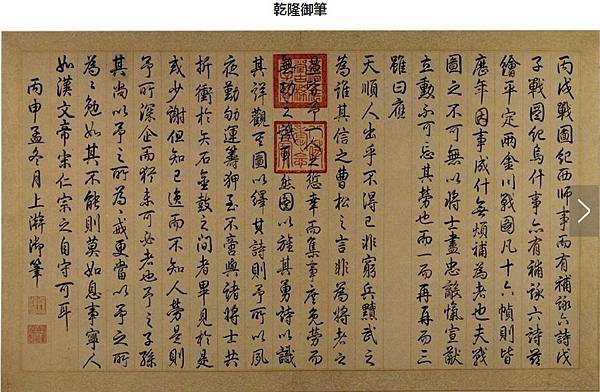 乾隆御筆
丙戌戰圖紀西師事而有補詠六詩戊
子戰圖紀烏什事亦有補詠六詩茲
繪平定兩金川戰圖凡十六幀則皆
歷年因事成什無煩補為者也夫戰
圖之不可無以將士盡忠敵愾宣猷
立勳不可忘其勞也而一而再再而三
雖曰應
天順人出乎不得已非窮兵黷武之
為誰其信之曹松之言非為將者之
予一人之愆幸而集事庶免勞而
無功之譏耳然圖以旌其勇詩以識
其詳觀其圖以繹其詩則予所以夙
夜勤劬運籌狎至不啻與諸將士共
折衝於矢石金鼓之間者畢見於是
或少謝但知己逸而不知人勞是則
予所深企而抑亦可必者也予之子孫
其尚以予之所為為戒更當以予之所
為為勉如其不能則莫如息事寧人
如漢文帝宋仁宗之自守可耳
丙申孟冬月上澣御筆